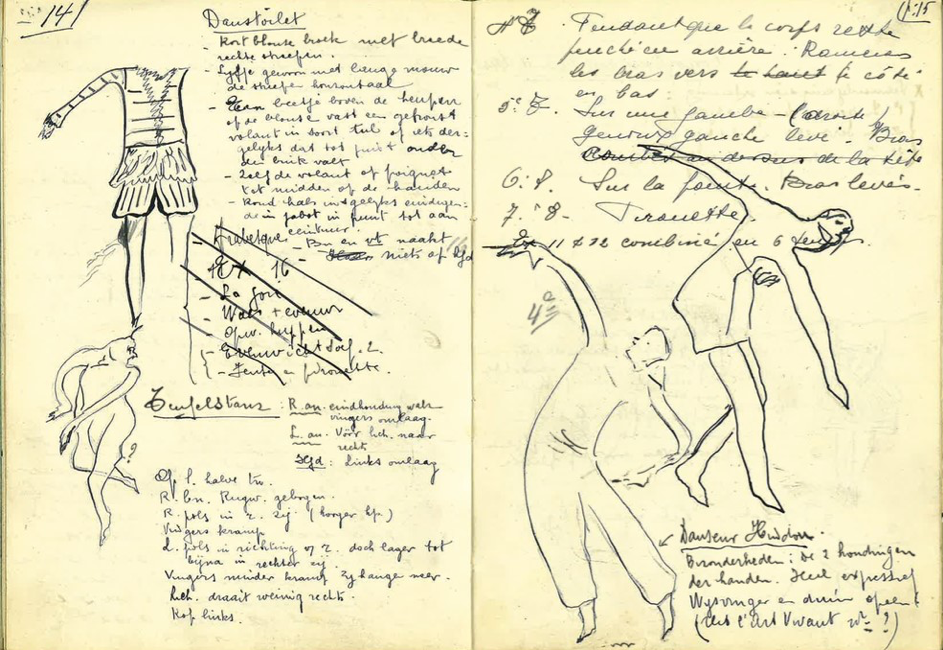 14
Danstoilet
- Kort blouse broek met breede
rechte streepen.
- Lyfje geworn met lange mouw
de streepen horizontaal
- Een beetje boven de heupen
op de blouse vast een gefronst
volant in soort tul of iets der-
gelyks dat tot juist onder
den broek valt
- Zelfde volant of poignet
tot midden op de handen
- Rond hals insgelyks eindigen-
de in jabot in punt tot aan
ceintuur.
- Bn en vt naakt
- niets op hfd
Arabesque
16
- La
- Wals + evenw
- Opw. huppen
- Evenwicht + 2.
- Jenté en pirouette.
Teufelstanz : R. an. eindhouding wals
vingers omlaag.
L. an. Vóór lich. naar
rechts
Hfd : Links omlaag
Op l. halve tn.
R. bn. Rugw. gebogen.
R. pols in r. zij (hooger hp.)
Vingers kramp
L. pols in richting v r. doch lager tot
bijna in rechter zij.
Vingers minder kramp zy hangen neer.
Lich. draait weinig rechts.
Kop links.
?
p. 15
Pendant que le corps reste
penché en arrière. Ramener
les bras vers le haut le côté
en bas
5: 7. Sur une jambe - (droite)
genoux gauche levé. Bras
courbés au dessus de la tête
6: 8. Sur la pointe. Bras levés.
7: 8 - Pirouette.
Ex 11 & 12 combiné en 6 temps.
4e
Danseur
Bizonderheden : de 2 houdingen
der handen. Heel expressief
Wysvinger en duim open
(Uit l'Art Vivant nr ?)